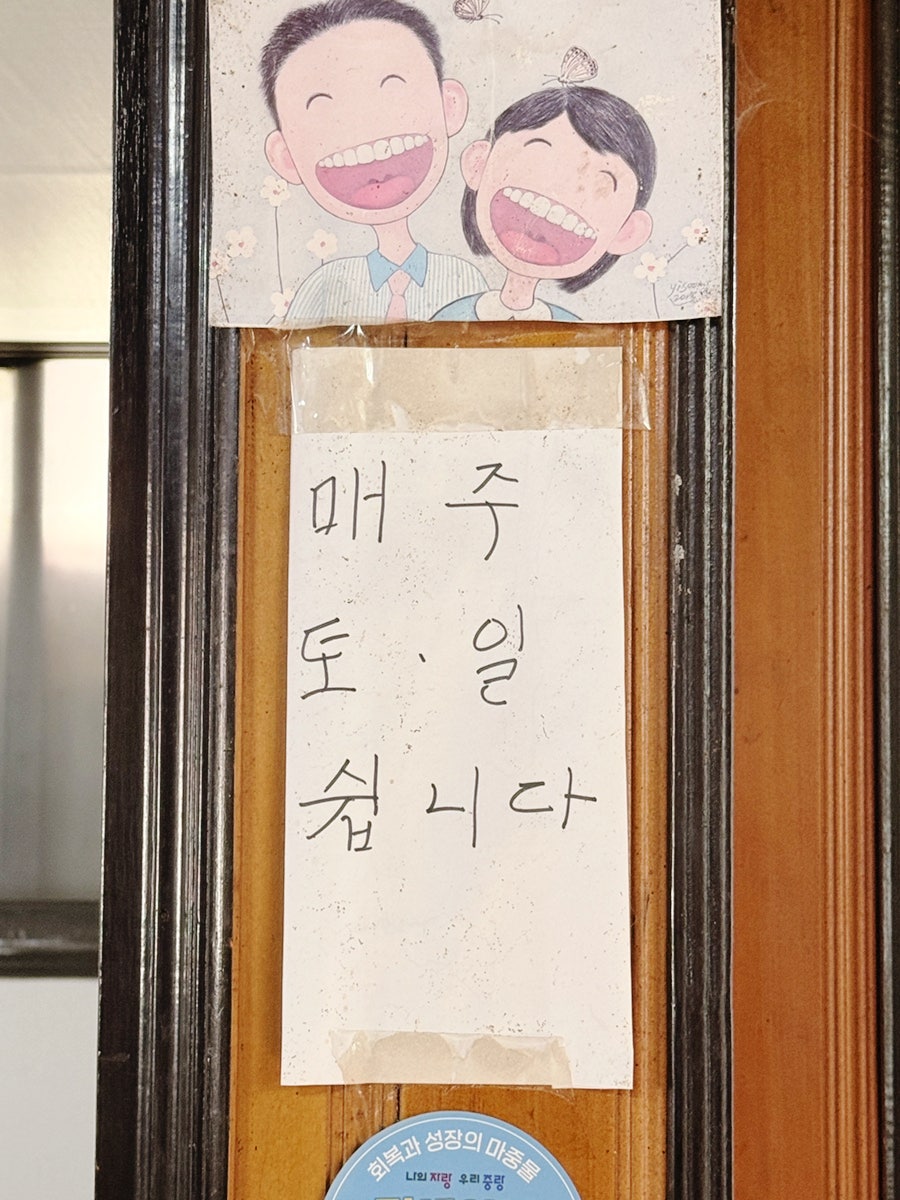 매 주
토 · 일
쉽니다
회복과 성장의 마중물
나의 자랑 우리 중랑